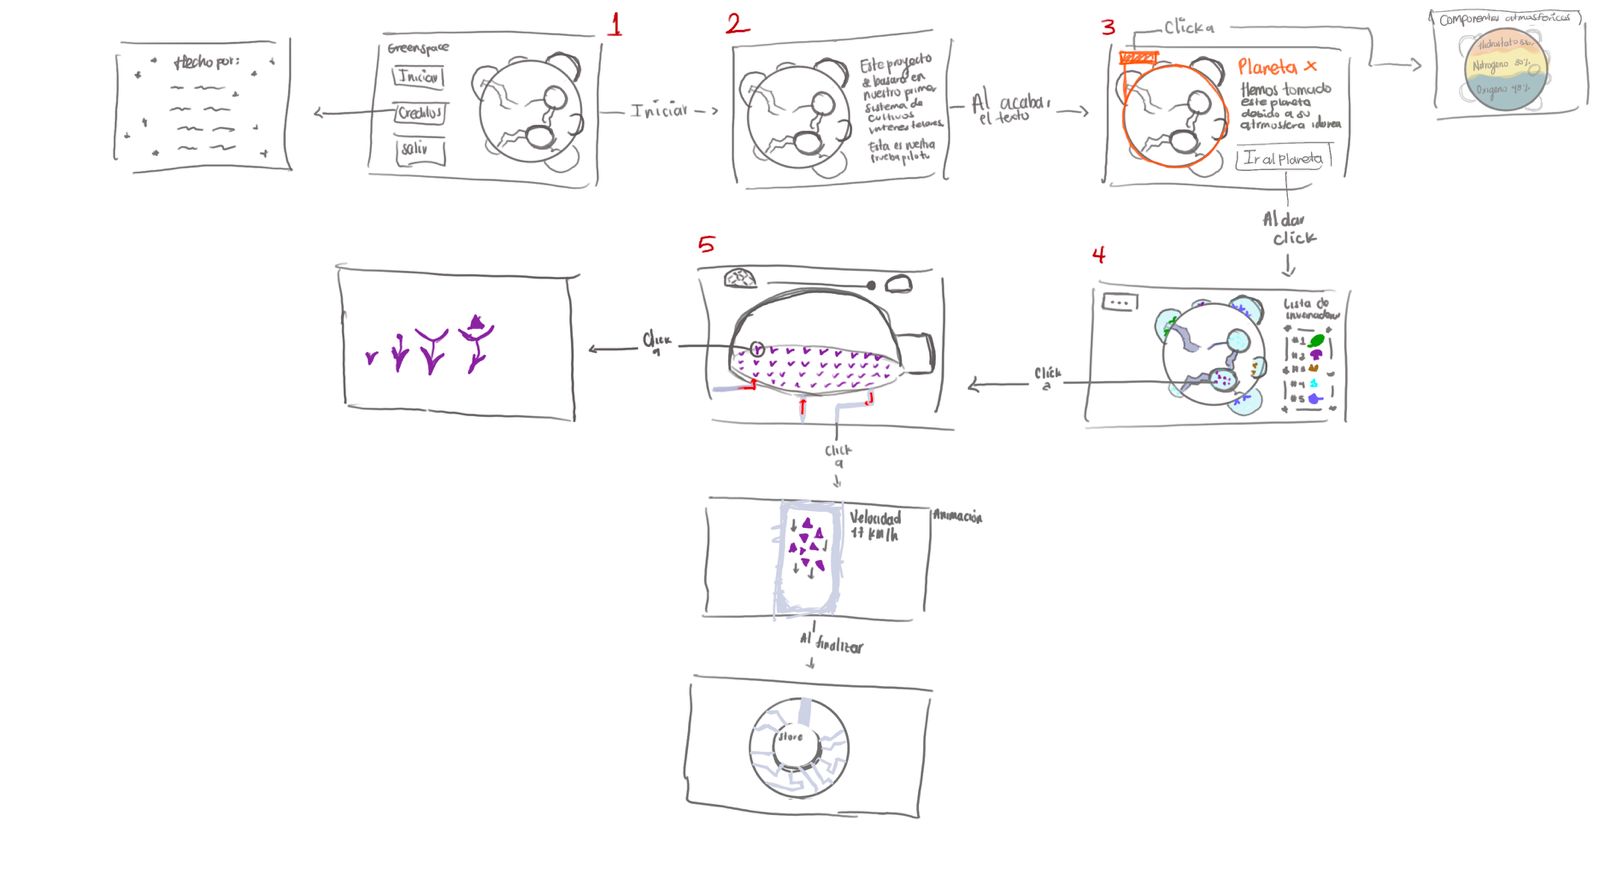 Hecho por:
1
Greenspace
Iniciar
Creditos
salir
Iniciar
2
Este proyecto
se basara en
nuestro primer
sistema de
cultivos
interestelares
Esta es nuestra
prueba piloto
Al acabar
el texto
3
Clicka
Planeta x
Hemos tomado
este planeta
debido a su
atmosfera idonea
Ir al planeta
Componentes atmosfericos
Nitrogeno 30%
Oxigeno 40%
Al dar
click
4
...
Lista de
invernaderos
#1
#2
#3
#4
#5
Click
a
5
Click
a
Click
a
Velocidad
17 km/h
Animación
Al finalizar
Store